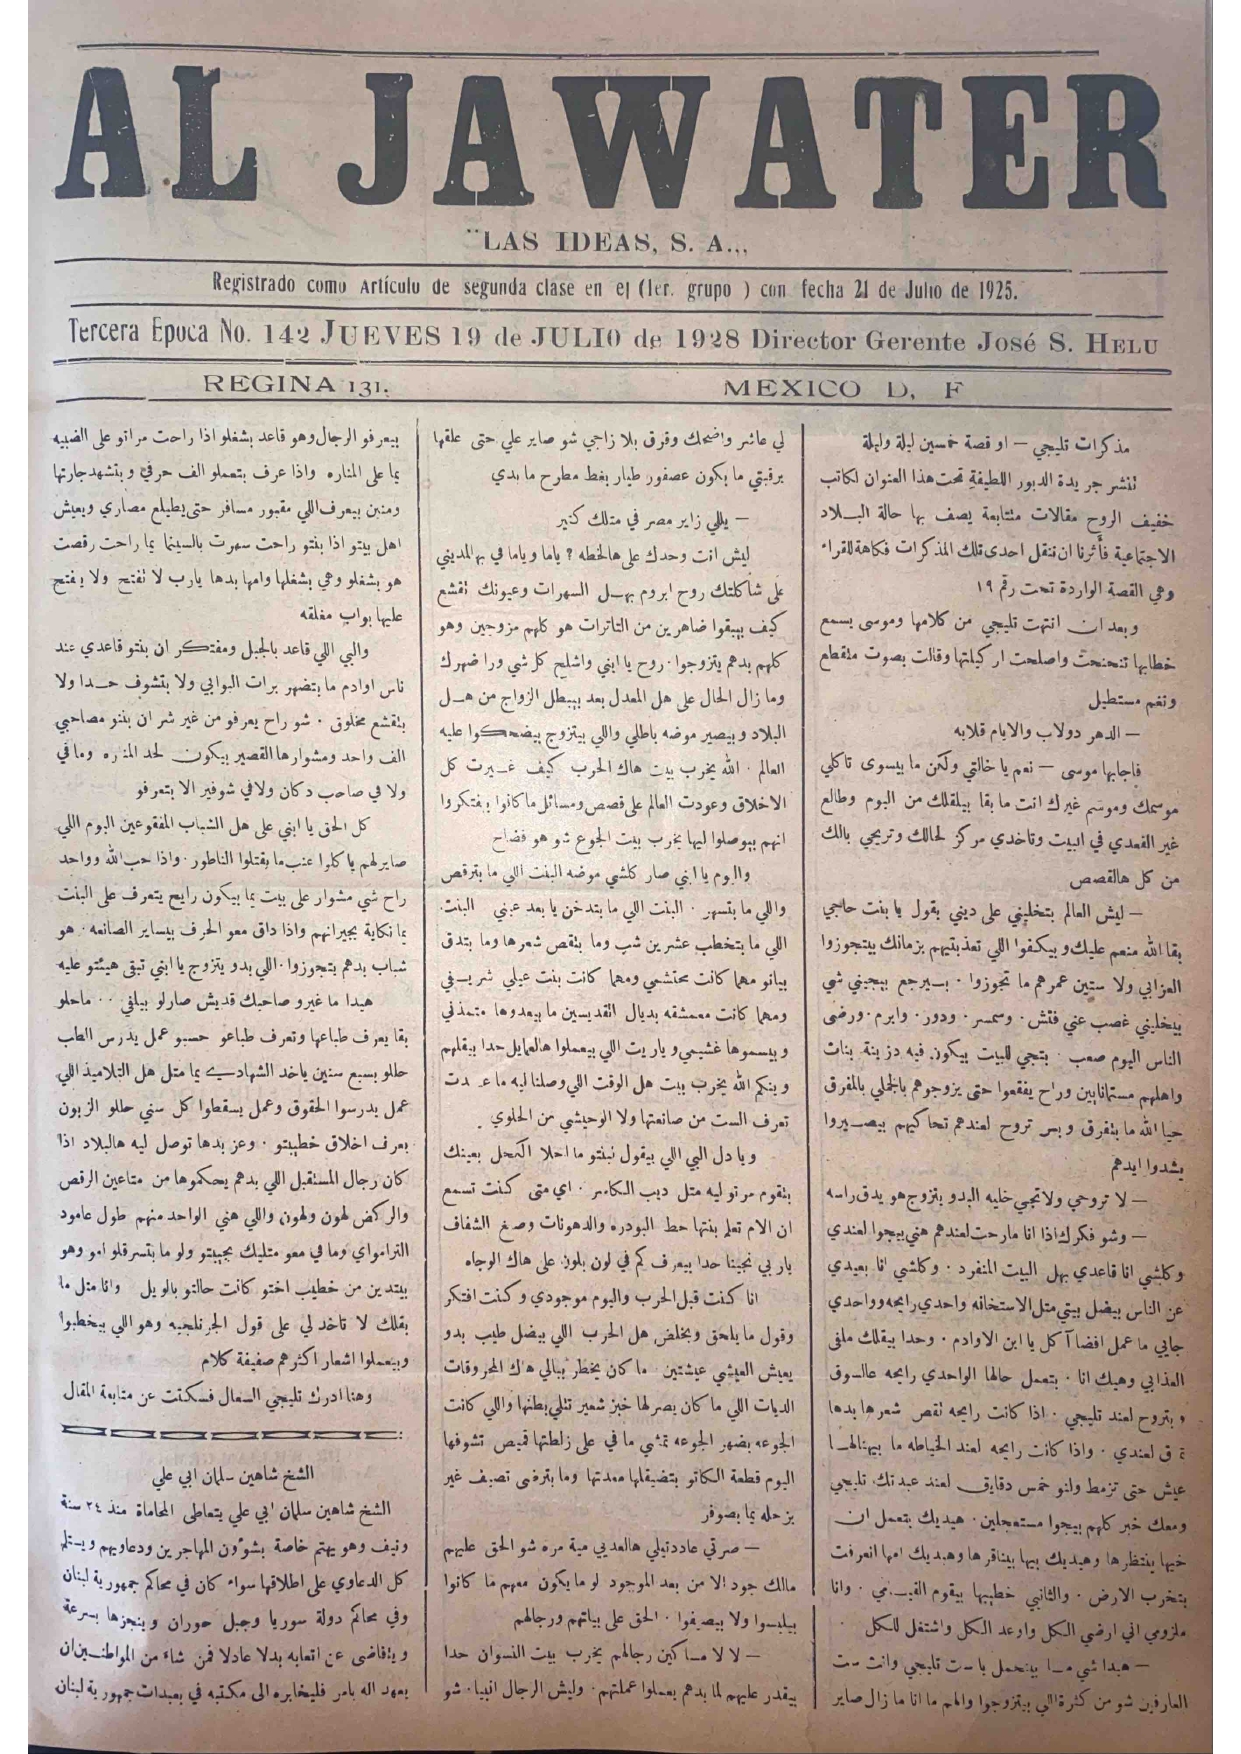 AL JAWATER
"LAS IDEAS, S. A.,,
Registrado como Artículo de segunda clase en el (1er. grupo ) con fecha 21 de Julio de 1925.
Tercera Epoca No. 142 JUEVES 19 de JULIO de 1928 Director Gerente José S. HELU
REGINA 131. MEXICO D, F
مذكرات تليجي — او قصة خمسين ليلة وليلة
تنشر جريدة الدبور اللطيفة تحت هذا العنوان لكاتب
خفيف الروح مقالات متتابعة يصف بها حالة البلاد
الاجتماعية فأثرنا ان ننقل احدى تلك المذكرات فكاهة للقراء
وهي القصة الواردة تحت رقم ١٩
وبعد ان انتهت تليجي من كلامها وموسى يسمع
خطابها تنحنحت واصلحت اركيلتها وقالت بصوت متقطع
ونغم مستطيل
— الدهر دولاب والايام قلابه
فاجابها موسى — نعم يا خالتي ولكن ما بيسوى تاكلي
موسمك وموسم غيرك انت ما بقا بيلقلك من اليوم وطالع
غير القعدي في البيت وتاخدي مركز لحالك وتريحي بالك
من كل هالقصص
— ليش العالم بتخليني على ديني بقول يا بنت حاجي
بقا الله منعم عليك وبيكفوا اللي تعذبتيهم بزمانك بيتجوزوا
العزابي ولا ستين عمرهم ما تجوزوا . بيرجع بيجيني شي
بيخليني غصب عني فتش . وسمسر . ودور . وابرم . ورضى
الناس اليوم صعب . بتجي للبيت بيكون فيه دزينة بنات
واهلهم مستمانايين وراح يفقعوا حتى يزوجوهم بالجملي بالمفرق
حيا الله ما بتفرق وبس تروح لعندهم تحاكيهم بيصيروا
يشدوا ايدهم
— لا تروحي ولا تجي خليه البدو يتزوج هو يدق راسه
— وشو فكرك اذا انا مارحت لعندهم هني بيجوا لعندي
وكلشي انا قاعدي بهل البيت المنفرد . وكلشي انا بعيدي
عن الناس بيضل بيتي متل الاستخانه واحدي رايحه وواحدي
جايي ما عمل افضا آكل يا ابن الاوادم . وحدا بيقلك ملفى
العذابي وهيك انا . بتعمل حالها الواحدي رايحه عالسوق
وبتروح لعند تليجي . اذا كانت رايحه تقص شعرها بدها
لعندي . واذا كانت رايحه لعند الخياطه ما بيهنالهـا
عيش حتى تزمط ولنو خمس دقايق لعند عبدتك تليجي
ومعك خبر كلهم بيجوا مستعجلين . هيديك بتعمل ان
خيها ينتظرها وهيديك بيها بيناقرها وهيديك امها انعرفت
بتخرب الارض . والتاني خطيبها بيقوم القيـمي . وانا
ملزومي اني ارضي الكل واوعد الكل واشتغل للكل .
— هيدا شي مـا بينحمل يا ست تليجي وانت ست
العارفين شو من كثرة اللي بيتزوجوا والهم ما انا ما زال صاير
لي عاشر واضحك وفرق بلا زاجي شو صاير علي حتى علقها
برقبتي ما بكون عصفور طيار بغط مطرح ما بدي
— يللي زاير مصر في متلك كتير
ليش انت وحدك على هالخطه ؟ ياما وياما في بهالمديني
على شاكلتك روح ابروم بهل السهرات وعيونك تقشع
كيف بيبقوا ضاهرين من التاترات هو كلهم مزوجين وهو
كلهم بدهم يتزوجوا . روح يا ابني واشلح كل شي ورا ضهرك
وما زال الحال على هل المعدل بعد بيبطل الزواج من هـل
البلاد وبيصير موضه باطلي واللي بيتزوج بيضحكوا عليه
العالم . الله يخرب بيت هاك الحرب كيف غـيرت كل
الاخلاق وعودت العالم على قصص ومسائل ما كانوا بفتكروا
انهم بيوصلوا ليها يخرب بيت الجوع شو هو فضاح
واليوم يا ابني صار كلشي موضه البنت اللي ما بترقص
واللي ما بتسهر . البنت اللي ما بتدخن يا بعد عيني البنت
اللي ما بتخطب عشرين شب وما بتقص شعرها وما بتدق
بيانو مهما كانت محتشمي ومهما كانت بنت عيلي شريـفي
ومهما كانت معمشقه بديال القديسين ما بيعدوها متمدني
وبيسموها غشيمي ويا ريت اللي بيعملوا هالعمايل حدا بيقلهم
وينكم الله يخرب بيت هل الوقت اللي وصلنا ليه ما عـدت
تعرف الست من صانعتها ولا الوحيشي من الحلوي .
ويا دل البي اللي بيقول لبنتو ما احلا الكحل بعينك
بتقوم مرتو ليه متل ديب الكاسر . اي متى كنت تسمع
ان الام تعلم بنتها حط البودره والدهونات وصبغ الشفاف
يا ربي نجينا حدا بيعرف كم في لون بلون على هاك الوجاه
انا كنت قبل الحرب واليوم موجودي وكنت افتكر
وقول ما يلحق وبخلص هل الحرب اللي بيضل طيب بدو
يعيش العيشي عيشتين . ما كان يخطر ببالي هاك المحروقات
الديات اللي ما كان بصرلها خبز شعير تتلي بطنها واللي كانت
الجوعه بضهر الجوعه تمشي ما في على زلطتها قميص تشوفها
اليوم قطعة الكاتو بتضيقلها معدتها وما بترضى تصيف غير
بزحله يما بصوفر
— صرتي عاددتيلي هالعديي مية مره شو الحق عليهم
مالك جود الا من بعد الموجود لو ما يكون معهم ما كانوا
بيلبسوا ولا بيصيفوا . الحق على بياتهم ورجالهم
— لا لا مساكين رجالهم يخرب بيت النسوان حدا
بيقدر عليهم لما بدهم يعملوا عملتهم . وليش الرجال انبيا . شو
بيعرفو الرجال وهو قاعد بشغلو اذا راحت مراتو على الضبيه
يما على المناره واذا عرف بتعملو الف حرفي وبتشهد جارتها
ومنين بيعرف اللي مقبور مسافر حتى يطيلع مصاري ويعيش
اهل بيتو اذا بنتو راحت سهرت بالسينما يما راحت رقصت
هو بشغلو وهي بشغلها وامها بدها يارب لا تفتح ولا يفتح
عليها بواب مغلقه
والبي اللي قاعد بالجبل ومفتكر ان بنتو قاعدي عند
ناس اوادم ما بتضهر برات البوابي ولا بتشوف حـدا ولا
بتقشع مخلوق . شو راح يعرفو من غير شر ان بنتو مصاحبي
الف واحد ومشوارها القصير بيكون لحد المناره وما في
ولا في صاحب دكان ولا في شوفير الا بتعرفو
كل الحق يا ابني على هل الشباب المفقوعين اليوم اللي
صايرلهم يا كلوا عنب ما بقتلوا الناطور . واذا حب الله وواحد
راح شي مشوار على بيت بما بيكون رايح يتعرف على البنت
يما نكاية بجيرانهم واذا داق معو الحرف بيساير الصانعه . هو
شباب بدهم يتجوزوا . اللي بدو يتزوج يا ابني تبقى هيئتو عليه
هيدا ما غيرو صاحبك قديش صارلو بيلفي . . ماحلو
بقا يعرف طباعها وتعرف طباعو حسبو عمل يدرس الطب
حللو بسبع سنين ياخد الشهادي يما متل هل التلاميذ اللي
عمل يدرسوا الحقوق وعمل يسقطوا كل سني حللو الزبون
يعرف اخلاق خطيبتو . وعز بدها توصل ليه هالبلاد اذا
كان رجال المستقبل اللي بدهم يحكموها من متاعين الرقص
والركض لهون ولهون واللي هني الواحد منهم طول عامود
الترامواي وما في معو متليك بجيبتو ولو ما بتسرقلو امو وهو
بيتدين من خطيب اختو كانت حالتو بالويل وانا متل ما
بقلك لا تاخد لي على قول الجرنلجيه وهو اللي بيخطبوا
وبيعملوا اشعار اكثرهم صفيفة كلام
وهنا ادرك تليجي السعال فسكتت عن متابعة المقال
الشيخ شاهين سلمان ابي علي
الشيخ شاهين سلمان ابي علي يتعاطى المحاماة منذ ٢٤ سنة
ونيف وهو يهتم خاصة بشؤون المهاجرين ودعاويهم ويستلم
كل الدعاوي على اطلاقها سواء كان في محاكم جمهورية لبنان
وفي محاكم دولة سوريا وجبل حوران وينجزها بسرعة
ويتقاضى عن اتعابه بدلا عادلا فمن شاء من المواطنين ان
يعهد اله بامر فليخابره الى مكتبه في بعبدات جمهورية لبنان